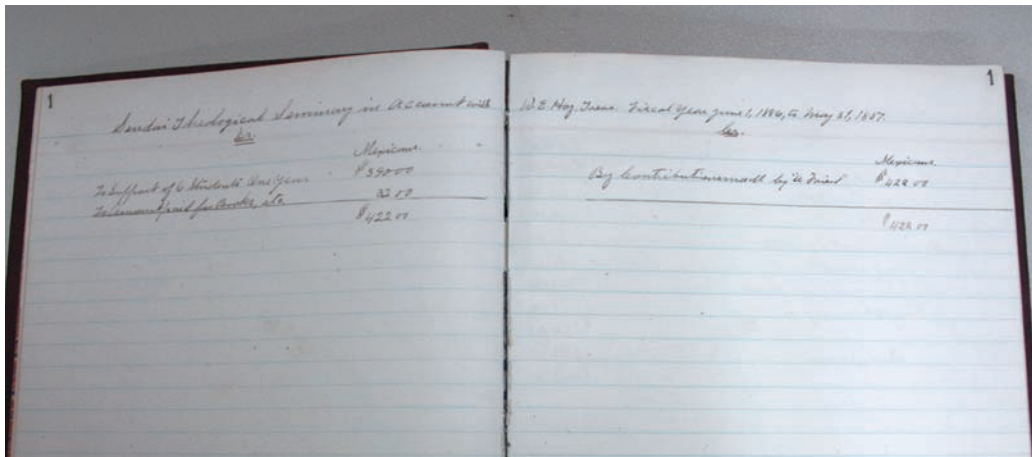 1
Sendai Theological Seminary in Account with
Dr.
Mexicans.
To Support of 6 Students One Year $390 00
To amount paid for Books, etc. 32 00
$422 00
1
W. E. Hoy, Treas. Fiscal Year June 1, 1886, to May 31, 1887.
Cr.
Mexicans.
By Contributions made by "A Friend $422 00
$422 00